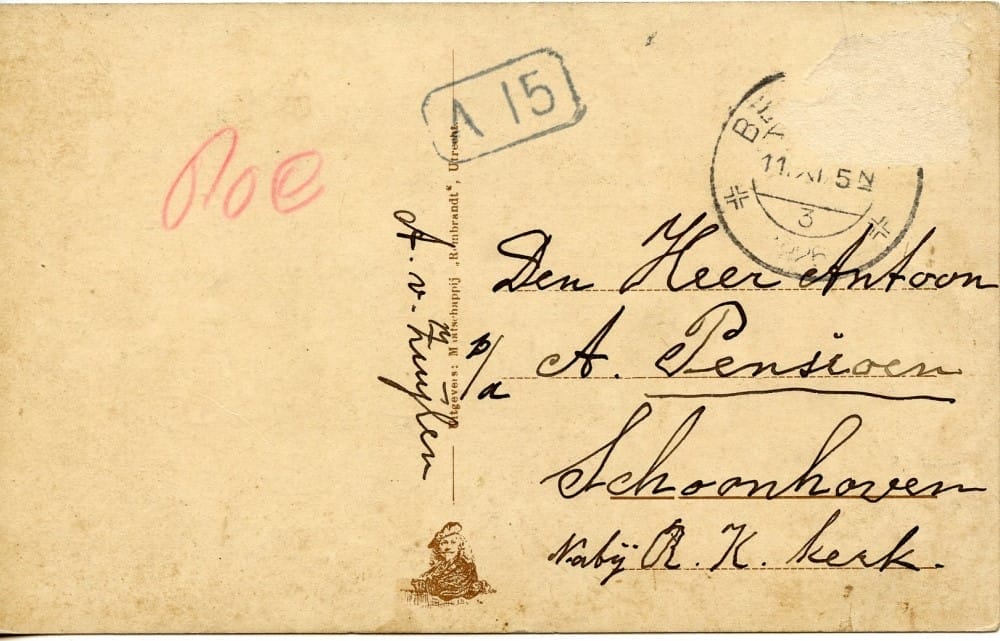 A 15
11.XI.5 N
3
Den Heer Antoon
p/a A. Pensioen
Schoonhoven
Nabij R. K. kerk.
Uitgevers: Maatschappij „Rembrandt", Utrecht.
A. v.